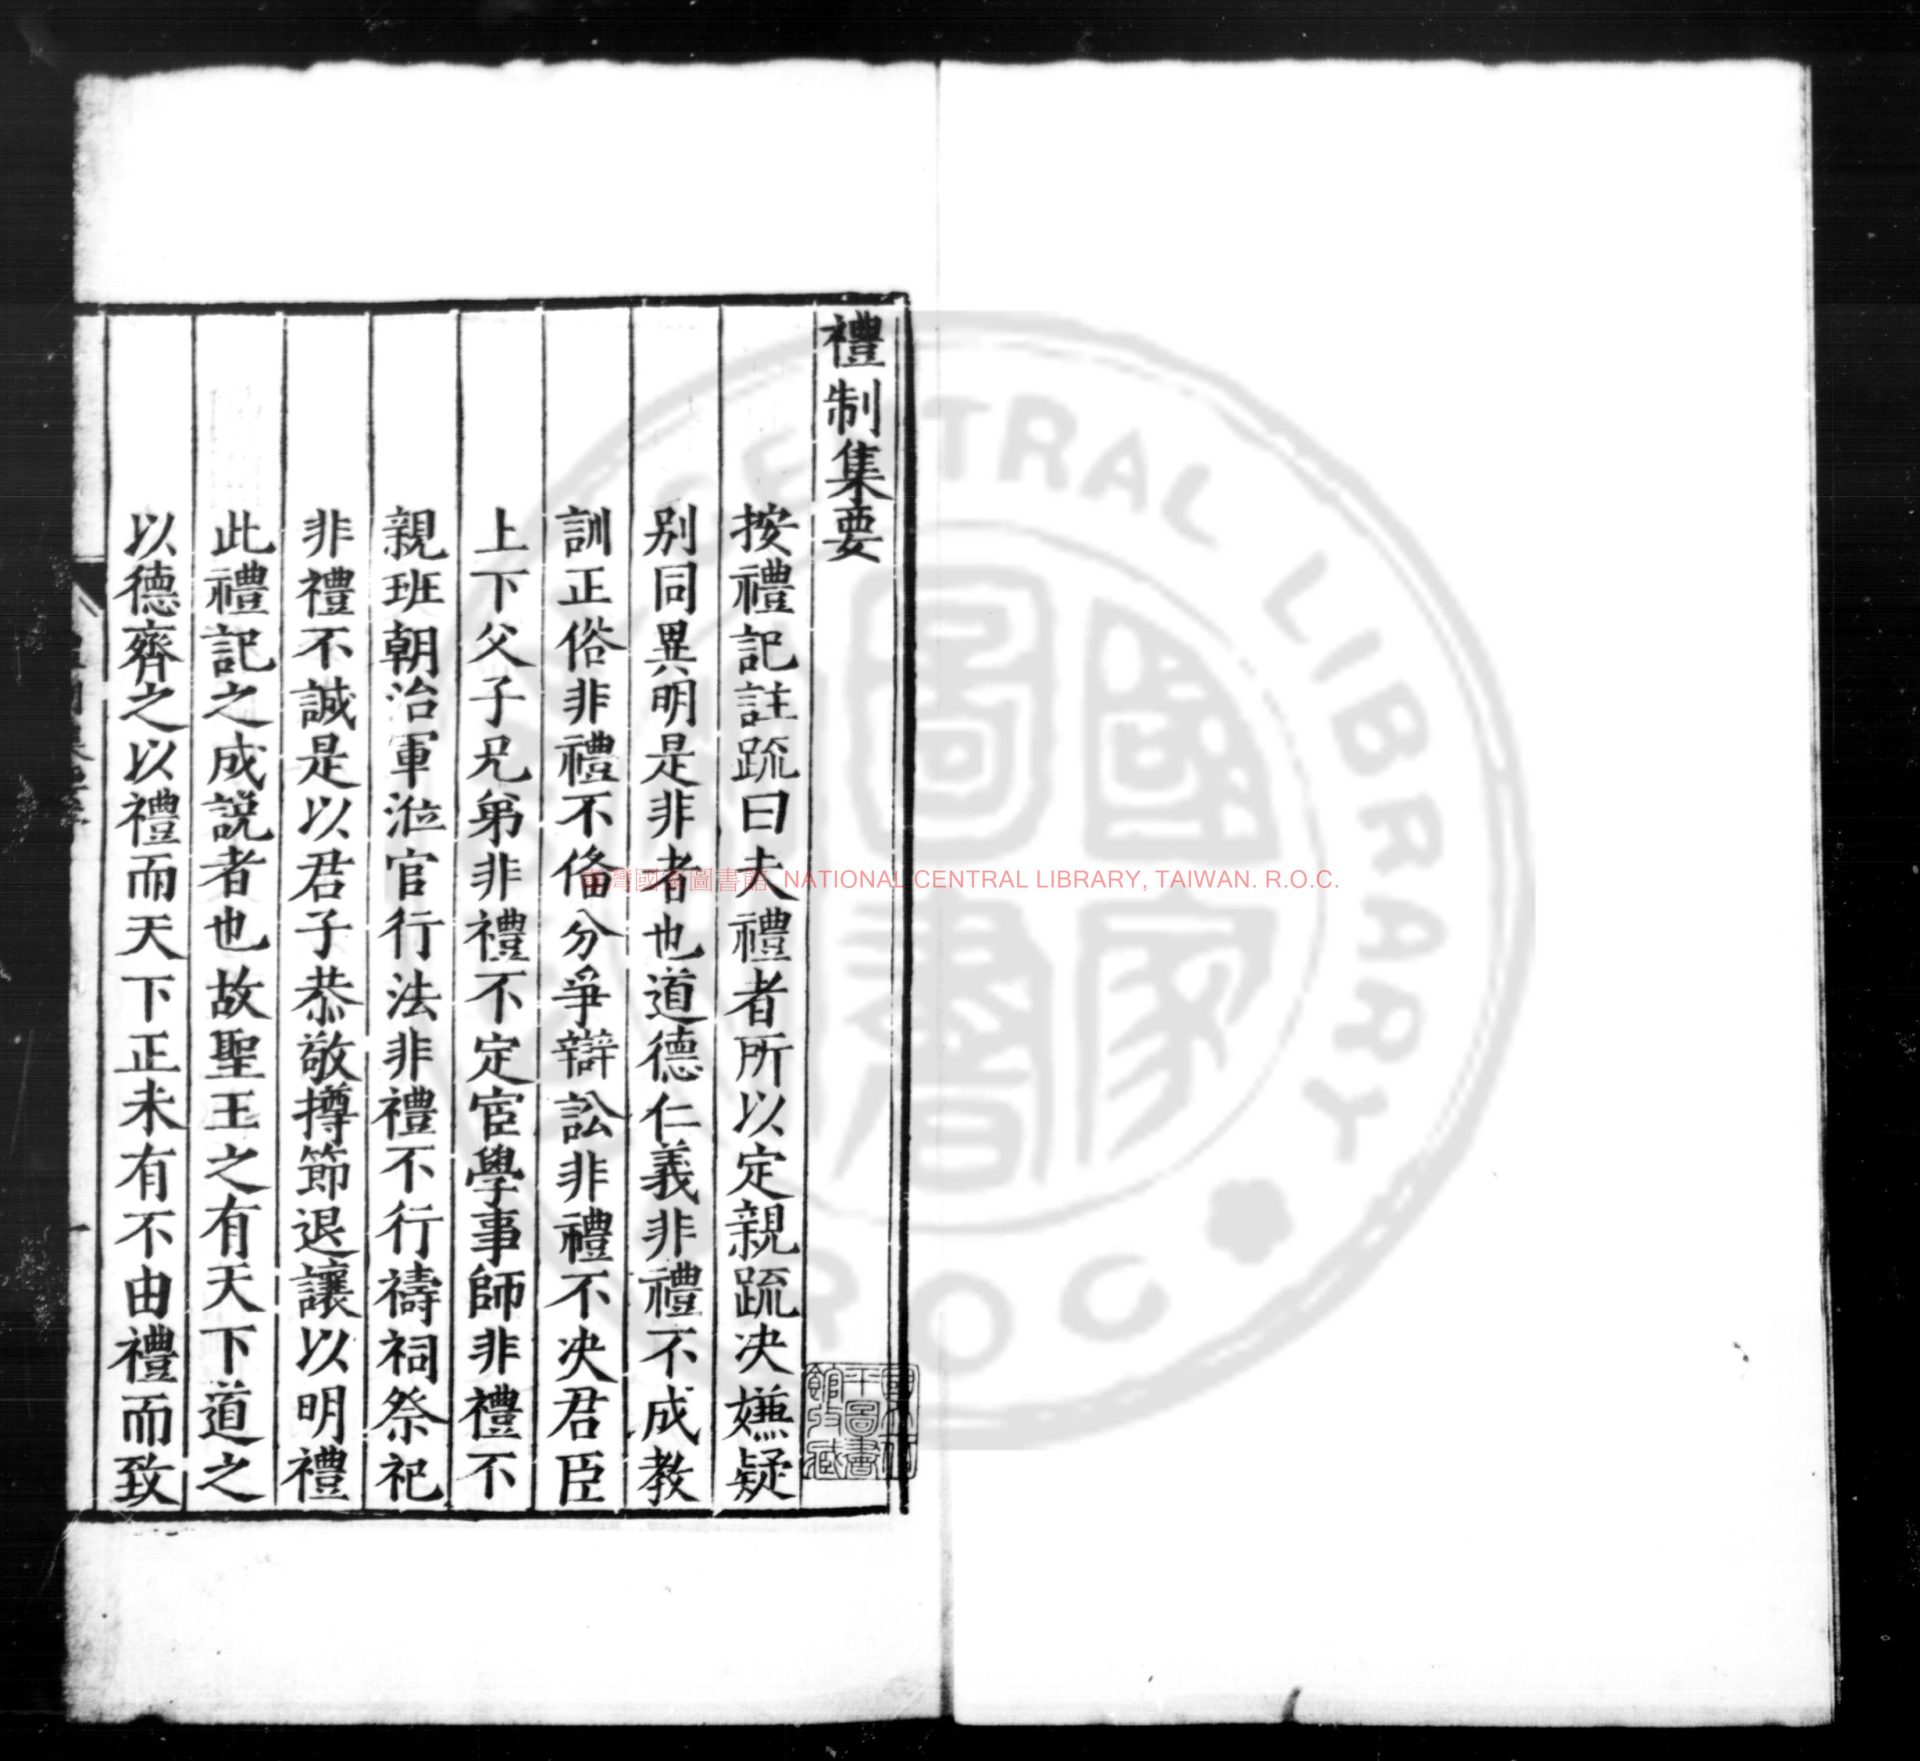 禮制集要
按禮記註疏曰夫禮者所以定親疏决嫌疑
别同異明是非者也道德仁義非禮不成教
訓正俗非禮不俻分爭辯訟非禮不决君臣
上下父子兄弟非禮不定宦學事師非禮不
親班朝治軍涖官行法非禮不行禱祠祭祀
非禮不誠是以君子恭敬撙節退讓以明禮
此禮記之成説者也故聖王之有天下道之
以德齊之以禮而天下正未有不由禮而致
臺灣國家圖書館 NATIONAL CENTRAL LIBRARY, TAIWAN. R.O.C.
國家圖書
CENTRAL LIBRARY
ROC